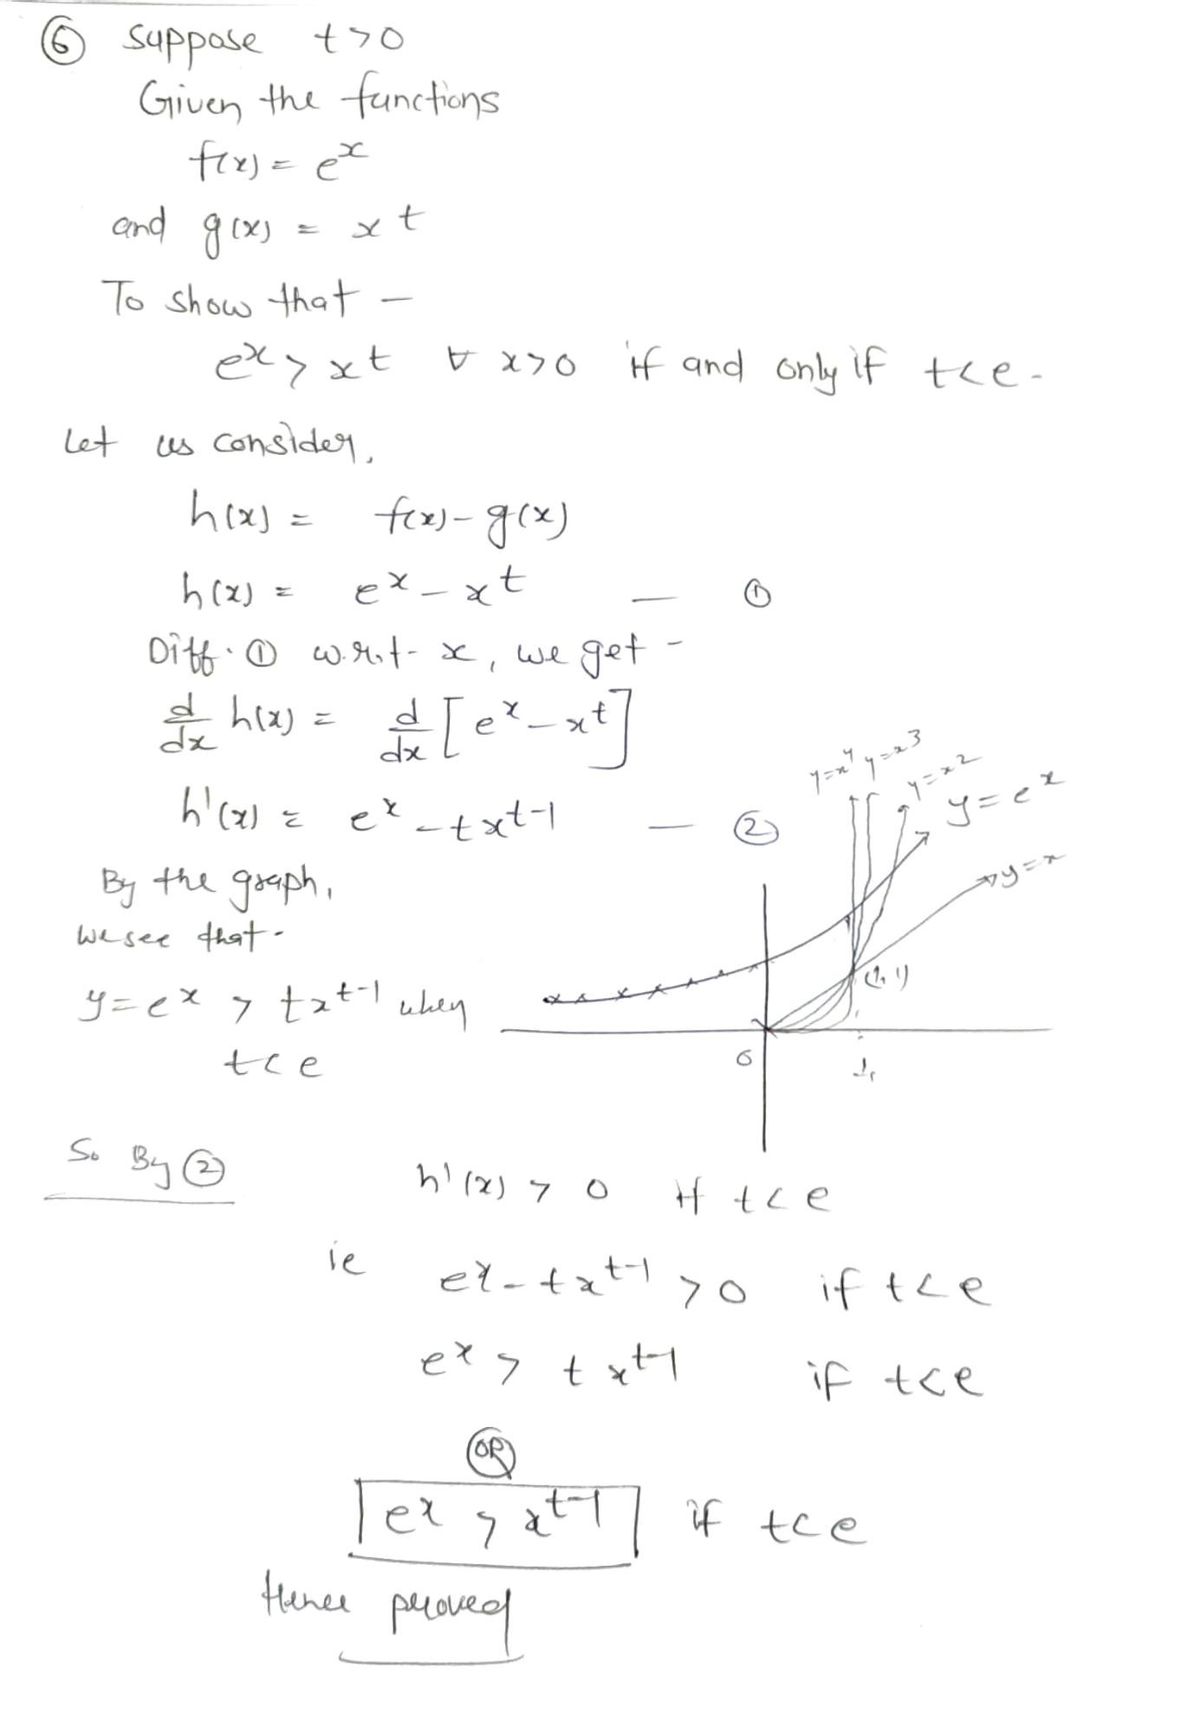 ⑥ Suppose t>0
Given the functions
f(x) = e^x
and g(x) = x^t
To show that –
e^x > x^t ∀ x>0 if and only if t<e.
Let us consider,
h(x) = f(x) – g(x)
h(x) = e^x – x^t — ①
Diff. ① w.r.t. x, we get –
d/dx h(x) = d/dx [e^x – x^t]
h'(x) = e^x – tx^t-1 — ②
y=x^4 y=x^3
y=x^2
y=e^x
y=x
(1,1)
0 1
By the graph,
we see that -
y=e^x > tx^t-1 when
t<e
So By ② h'(x) > 0 if t<e
ie e^x – tx^t-1 > 0 if t<e
e^x > t x^t-1 if t<e
OR
e^x > x^t-1 if t<e
Hence proved